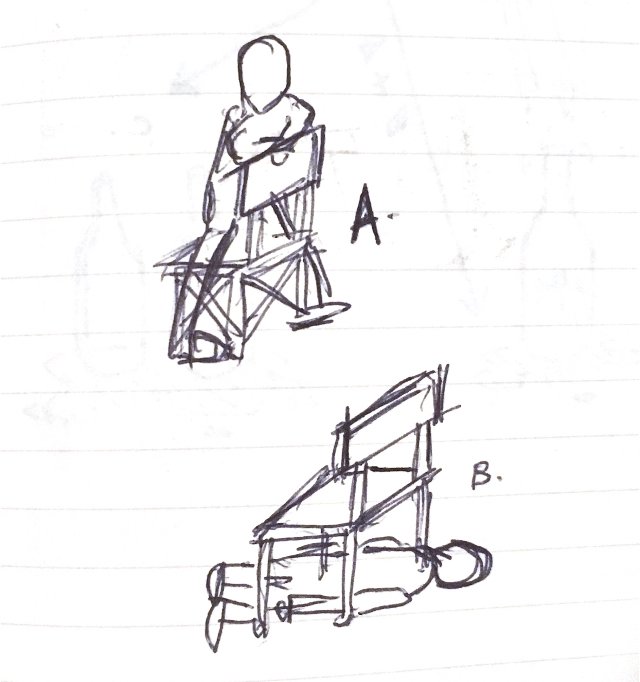 A.
B.